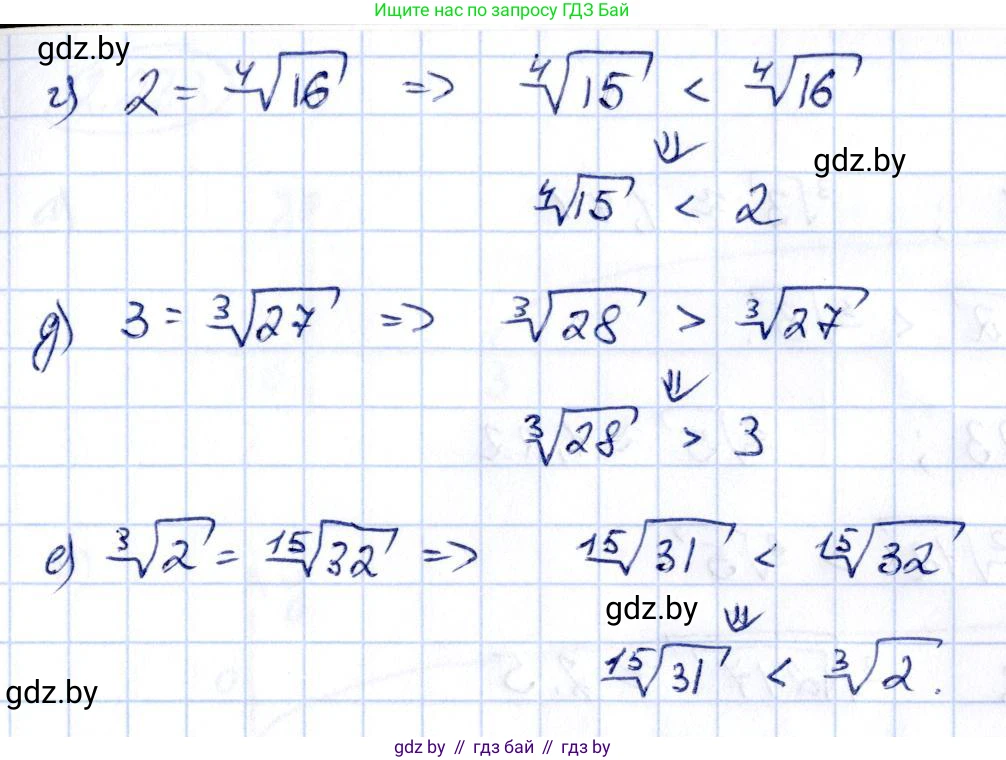 Ищите нас по запросу ГДЗ Бай
gdz.by
г) 2 = ∜16 => ∜15 < ∜16
gdz.by
⇓
∜15 < 2
д) 3 = ∛27 => ∛28 > ∛27
⇓
∛28 > 3
е) ∛2 = ¹⁵√32 => ¹⁵√31 < ¹⁵√32
gdz.by
⇓
gdz.by
¹⁵√31 < ∛2.
gdz.by // гдз бай // гдз by